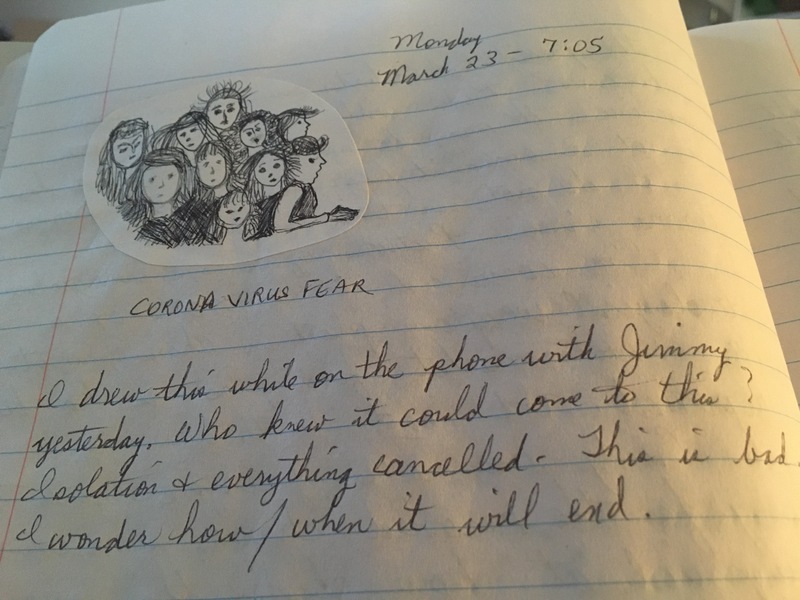 Monday
March 23 - 7:05
CORONA VIRUS FEAR
I drew this while on the phone with Jimmy
yesterday. Who knew it could come to this?
Isolation & everything cancelled. This is bad.
I wonder how/when it will end.